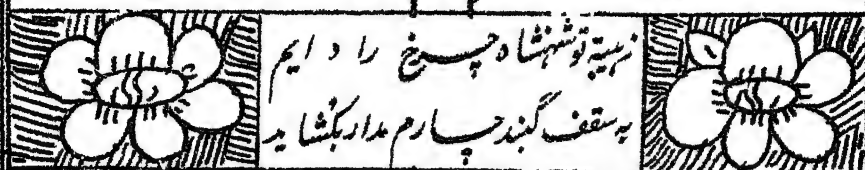 زہیبتِ تو شہنشاہ چرخ را دایم
بہ سقف گنبد چارم مدار بکشاید